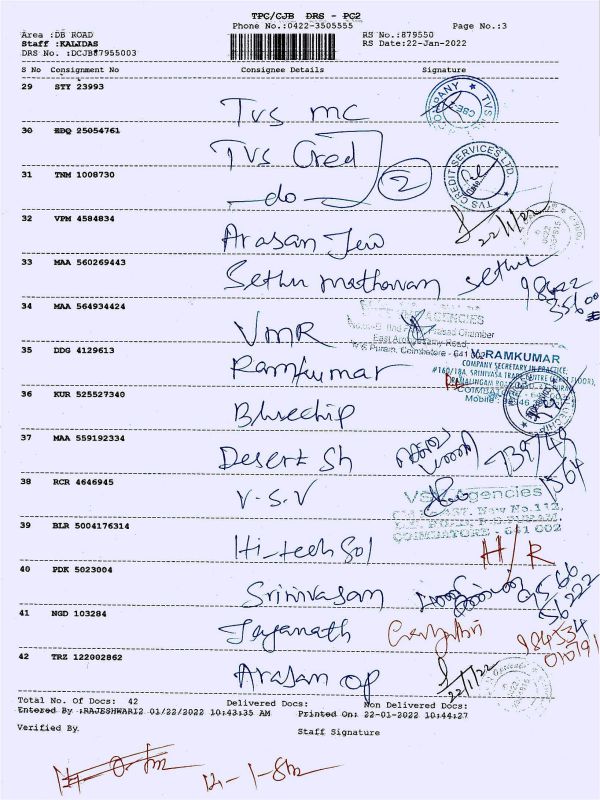 TPC/CJB DRS - PC2
Phone No.:0422-3505555
Page No.:3
Area :DB ROAD
RS No.:879550
Staff :KALIDAS
RS Date:22-Jan-2022
DRS No. :DCJB87955003
S No Consignment No Consignee Details Signature
29 STY 23993
Tvs mc
COMPANY TVS
CBE
30 EDQ 25054761
TVS Cred
2
TVS CREDIT SERVICES LTD.
31 TNM 1008730
do
32 VPM 4584834
Arasan Jew
22/1/22
33 MAA 560269443
Sethu mathavan Sethu
98422
35600
34 MAA 564934424
VMR
AGENCIES
Prasad Chamber
R S Puram, Coimbatore - 641 002
35 DDG 4129613
Ramkumar
V. RAMKUMAR
COMPANY SECRETARY IN PRACTICE,
#160/18A, SRINIVASA TRADE CENTRE
36 KUR 525527340
Bluechip
37 MAA 559192334
Desert Sh
38 RCR 4646945
V-S.V
VSV Agencies
New No.112,
COIMBATORE - 641 002
39 BLR 5004176314
Hi-tech Sol
H/R
40 PDK 5023004
Srinivasan
9566
56222
41 NGD 103284
Jayanath
984534
010791
42 TRZ 122002862
Arasan op
22/1/22
Total No. Of Docs: 42 Delivered Docs: Non Delivered Docs:
Entered By :RAJESHWARI2 01/22/2022 10:43:35 AM Printed On: 22-01-2022 10:44:27
Verified By
Staff Signature